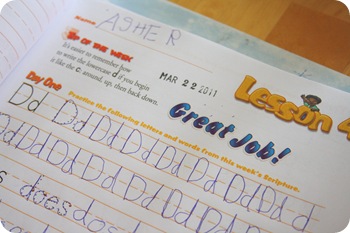 Name ASHER
Tip OF THE WEEK
It's easier to remember how
to write the lowercase d if you begin
it like the c: around, up, then back down.
MAR 22 2011
Lesson 4
Great Job!
Day One
Practice the following letters and words from this week's Scripture.
Dd Dd Dd Dd Dd Dd Dd
Dd Dd Dd Dd Dd Dd Dd
does does